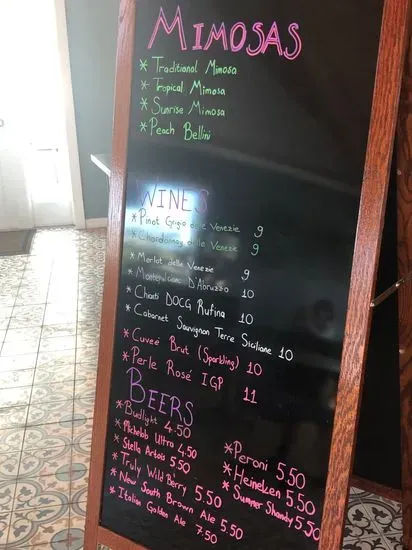 MIMOSAS
* Traditional Mimosa
* Tropical Mimosa
* Sunrise Mimosa
* Peach Bellini
WINES
* Pinot Grigio delle Venezie 9
* Chardonnay delle Venezie 9
* Merlot delle Venezie 9
* Montepulciano D'Abruzzo 10
* Chianti DOCG Rufina 10
* Cabernet Sauvignon Terre Siciliane 10
* Cuveé Brut (Sparkling) 10
* Perle Rosé IGP 11
BEERS
* Budlight 4.50
* Michelob Ultra 4,50
* Stella Artois 5.50
* Truly Wild Berry 5.50
* New South Brown Ale 5.50
* Italian Golden Ale 7.50
* Peroni 5.50
* Heineken 5.50
* Summer Shandy 5.50